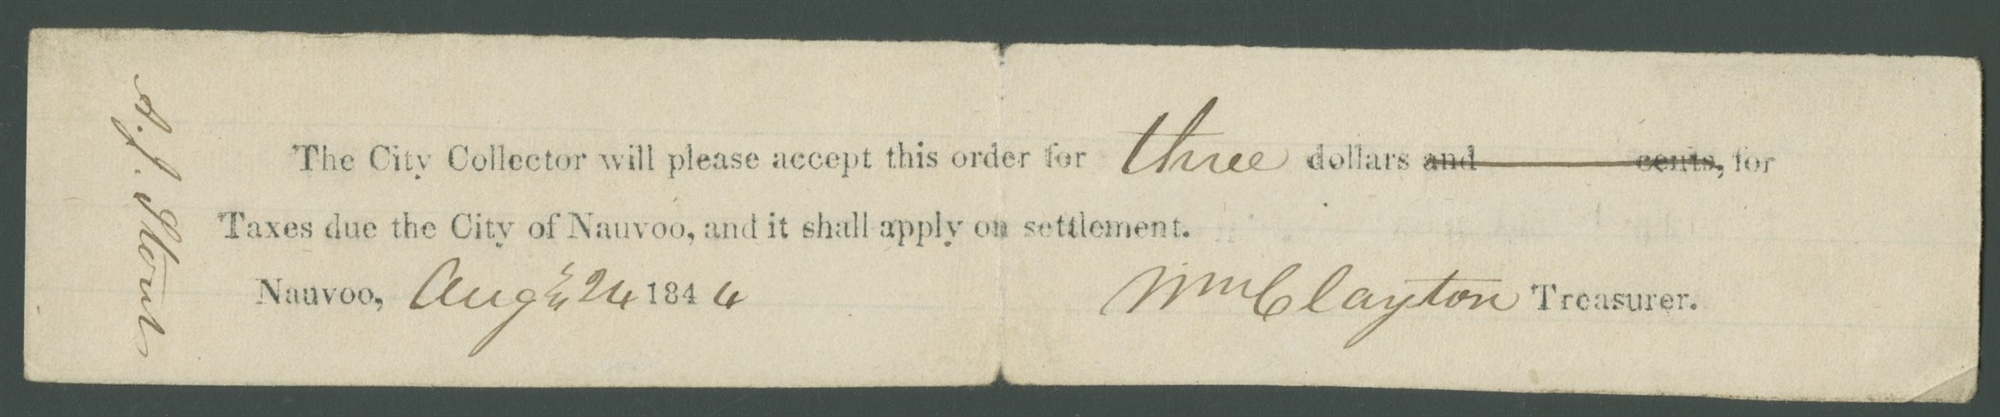 The City Collector will please accept this order for three dollars and cents, for
Taxes due the City of Nauvoo, and it shall apply on settlement.
Nauvoo, Augst 24 1844 Wm Clayton Treasurer.
A. J. Stout